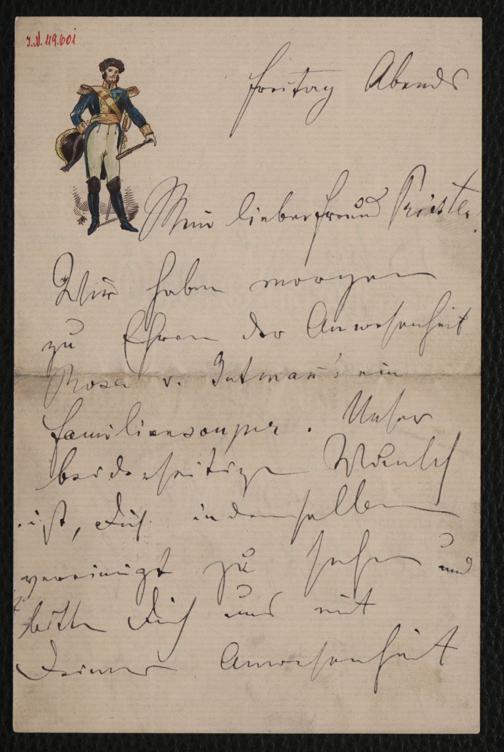 J.N. 49.601
Freitag Abends
Mein lieber Freund Priester.
Wir haben morgen
zu Ehren der Anwesenheit
Rosa v. Gutman's ein
Familiensouper. Unser
beiderseitiger Wunsch
ist, Dich in demselben
vereinigt zu sehen und
bitte Dich uns mit
Deiner Anwesenheit